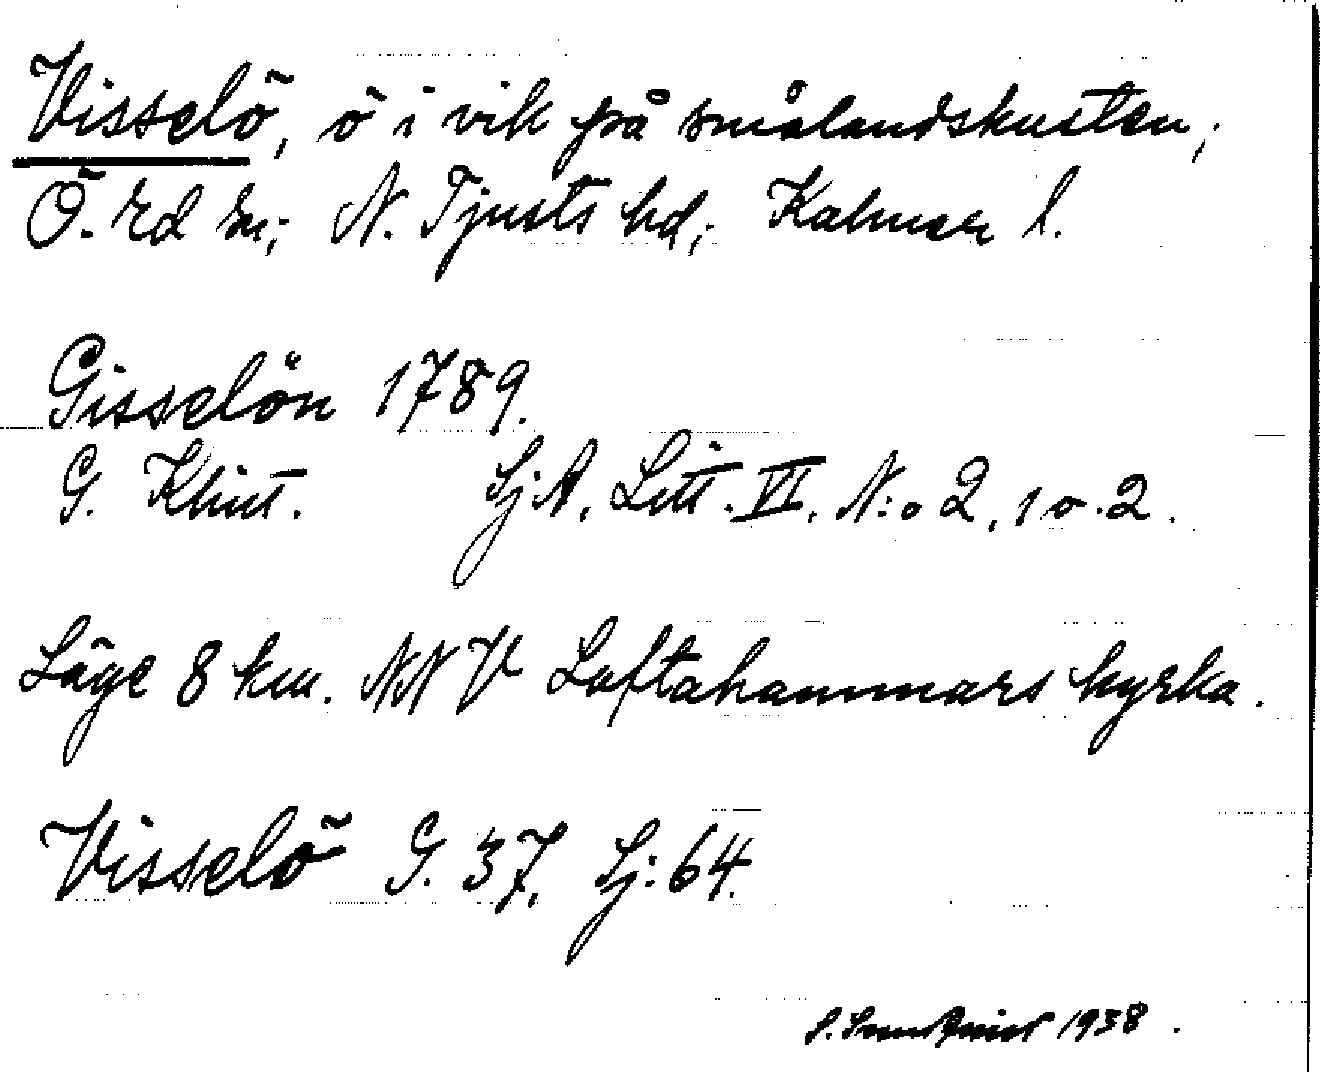 Visselö, ö i vik på smålandskusten;
Ö. Ed sn; N. Tjusts hd; Kalmar l.
Gisselön 1789.
G. Klint. Sj A. Litt. VI. N:o 2, 1 o. 2.
Läge 8 km. NNV Loftahammars kyrka.
Visselö G. 37, Sj: 64.
1938.